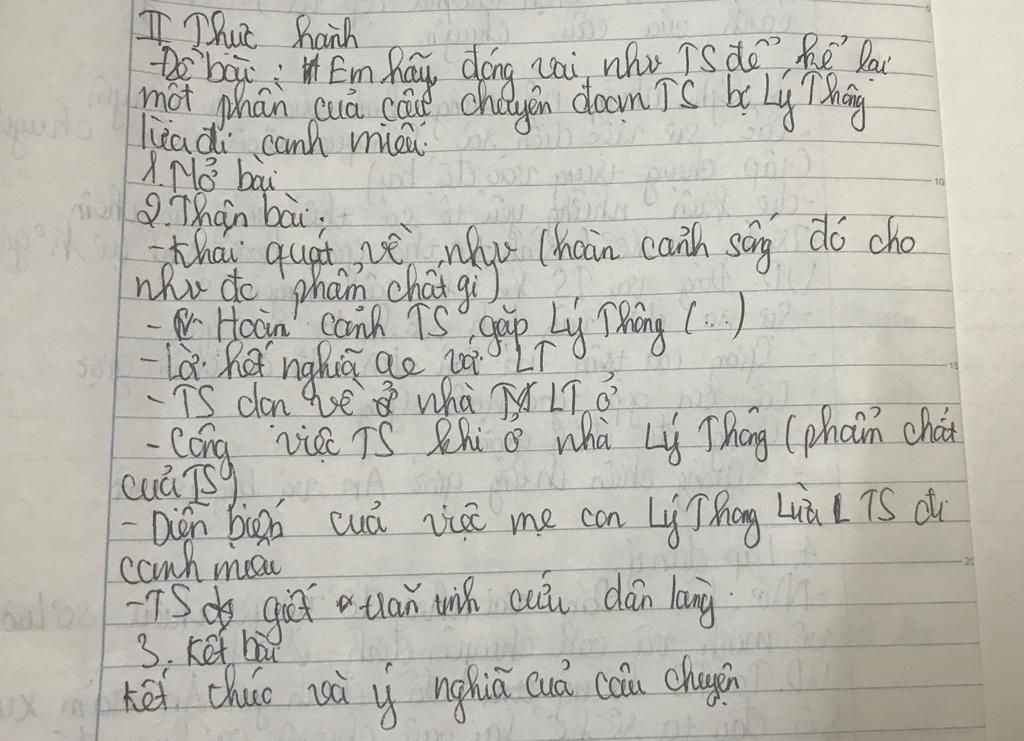 II Thực hành
-Đề bài: Em hãy đóng vai như TS để kể lại
một phần của câu chuyện đoạn TS bị Lý Thông
lừa đi canh miếu.
1. Mở bài
2. Thân bài.
-Khái quát về như (hoàn cảnh sống đó cho
như đc phẩm chất gì)
- Hoàn cảnh TS gặp Lý Thông (...)
- Lời kết nghĩa ae với LT
- TS dọn về ở nhà LT ở
- Công việc TS khi ở nhà Lý Thông (phẩm chất
của TS)
- Diễn biến của việc mẹ con Lý Thông Lừa TS đi
canh miếu
-TS giết trăn tinh cứu dân làng.
3. Kết bài
Kết thúc và ý nghĩa của câu chuyện